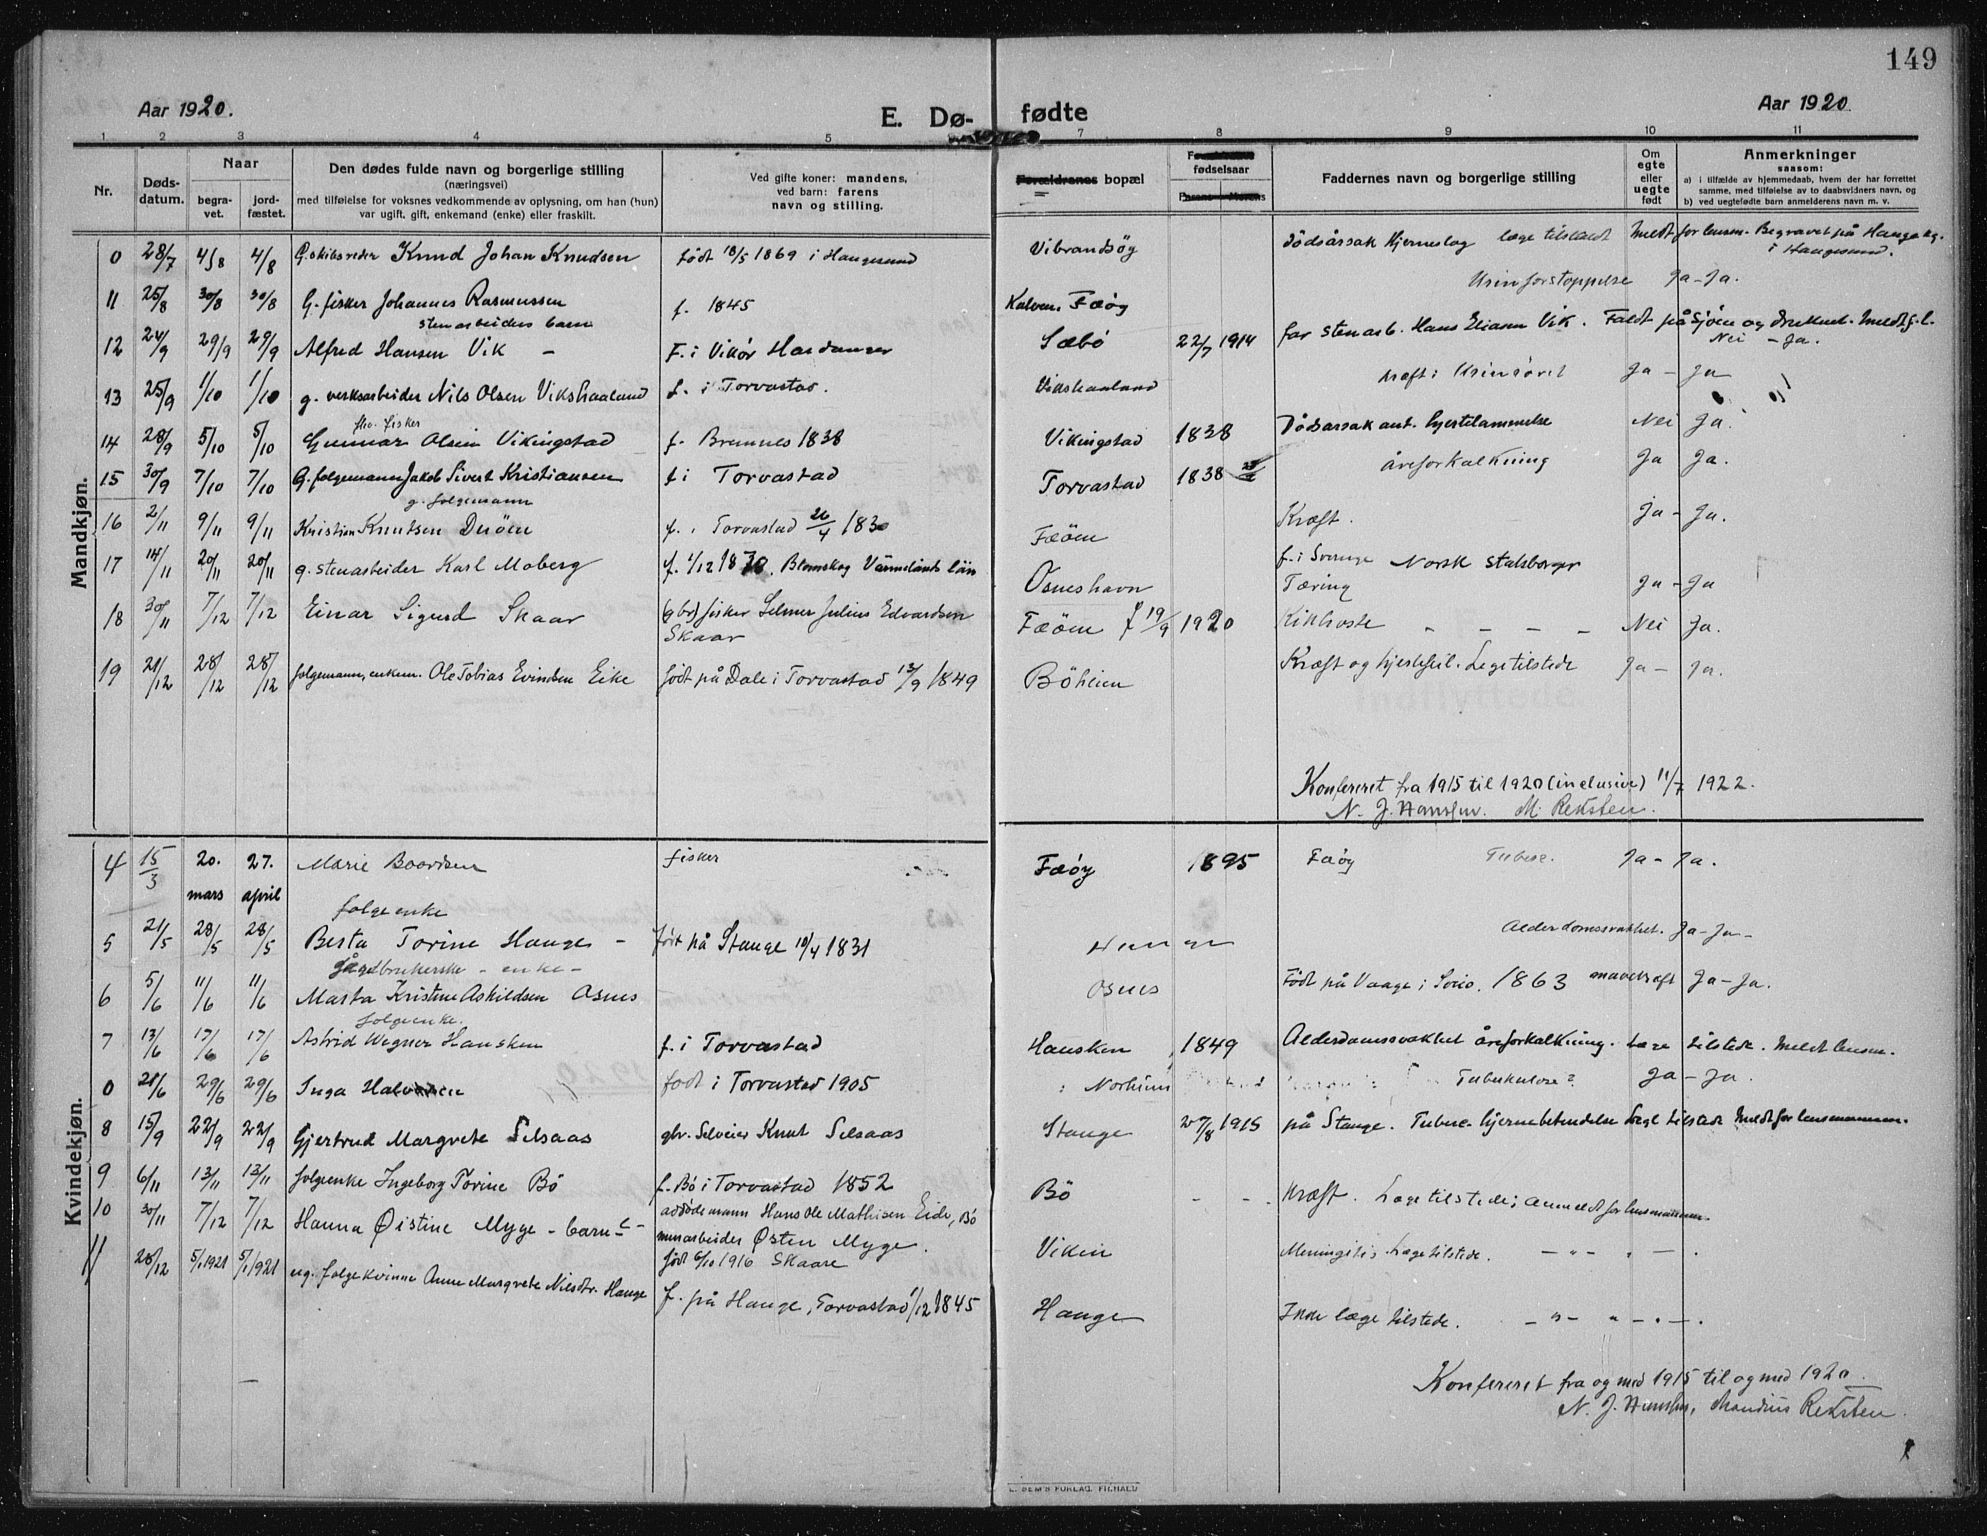 149
Aar 1920.
E. Dø-
fødte
Aar 1920.
1 2 3 4 5 7 8 9 10 11
Nr.
Døds-
datum.
Naar
begra-
vet.
jord-
fæstet.
Den dødes fulde navn og borgerlige stilling
(næringsvei)
med tilføielse for voksnes vedkommende av oplysning, om han (hun)
var ugift, gift, enkemand (enke) eller fraskilt.
Ved gifte koner: mandens,
ved barn: farens
navn og stilling.
Forældrenes bopæl
fødselsaar
Farens Morens
Faddernes navn og borgerlige stilling
Om
egte
eller
uegte
født
Anmerkninger
saasom:
a) i tilfælde av hjemmedaab, hvem der har forrettet
samme, med tilføielse av to daabsvidners navn, og
b) ved uegtefødte barn anmelderens navn m. v.
Mandkjøn.
0 28/7 4/8 4/8 G. skibsreder Knud Johan Knudsen født 18/5 1869 i Haugesund Vibrandsøg Dødsårsak Hjerneslag læge tilstædt Meldt for lensm. Begravet på Hauge kg.
i Haugesund.
11 25/8 30/8 30/8 G. fisker Johannes Rasmussen f. 1845 Kalven, Fæøy Urinforstoppelse Ja - Ja.
stenarbeiders barn
12 24/9 29/9 29/9 Alfred Hansen Vik - F. i Vikør Hardanger Sæbö 22/7 1914 far stenarb. Hans Eliasen Vik. Faldt på Sjöen og druknet. Meldt f. l.
Nei - Ja.
13 25/9 1/10 1/10 g. verksarbeider Nils Olsen Vikshaaland f. i Torvastad. Vikshaaland Kræft i Urinröret Ja - Ja
fhv. fisker
14 28/9 5/10 5/10 Gunnar Olsen Vikingstad f. Bremnes 1838 Vikingstad 1838 Dødsarsak ant. hjertelammelse Nei Ja.
15 30/9 7/10 7/10 G. folgemann Jakob Sivert Kristiansen f i Torvastad Torvastad 1838 åreforkalkning Ja Ja.
g. folgemann
16 2/11 9/11 9/11 Kristian Knutsen Duöen f. i Torvastad 26/4 1830 Fæöen Kræft. Ja - Ja.
17 14/11 20/11 20/11 g. stenarbeider Karl Moberg f. 1/12 1878. Blomskog Värmelands län Osneshavn f. i Sverige Norsk statsborger
Tæring Ja - Ja
18 30/11 7/12 7/12 Einar Sigurd Skaar (gbr) fisker Selmer Julius Edvardsen
Skaar Fæöen f 19/9 1920 Kikhoste - - - - Nei Ja.
19 21/12 28/12 28/12 folgemann, enkem. Ole Tobias Evindsen Eike født på Dale i Torvastad 13/9 1849 Böheien Kræft og hjertefeil. Lege tilstede Ja - Ja.
Konfereret fra 1915 til 1920 (inclusive) 11/7 1922.
N. J. M. Reksten.
Kvindekjøn.
4 15/3 20. mars 27. april Marie Boardsen fisker Fæöy 1895 Fæöy Tuberc. Ja - Ja.
folgeenke
5 21/5 28/5 28/5 Berta Torine Hauge - født på Stange 10/4 1831 Hauge Alderdomssvakhet. Ja - Ja -
gårdbrukerske - enke -
6 5/6 11/6 11/6 Marta Kristine Askildsen Osnes Osnes Født på Vaage i Sveio. 1863 mavekræft Ja - Ja.
folgeenke.
7 13/6 17/6 17/6 Astrid Wegner Hausken f. i Torvastad Hausken 1849 Alderdomssvakhet åreforkalkning. Læge tilstede. Meldt lensm.
0 21/6 29/6 29/6 Inga Halvorsen født i Torvastad 1905 Norheim Tuberkulose? Ja - Ja.
8 15/9 22/9 22/9 Gjertrud Margrete Selsaas gbr. Selveier Knut Selsaas Stange 27/8 1915 på Stange. Tuberc. hjernebetendelse Lege tilstede Meldt for lensmannen.
9 6/11 13/11 13/11 folgeenke Ingeborg Torine Bö f. Bö i Torvastad 1852 Bö - - Kræft. Læge tilstede; anmeldt for lensmannen.
10 30/11 7/12 7/12 Hanna Øistine Myge - barn - Hans Ole Mathisen Eide, Bö
minearbeider Østen Myge.
født 6/10 1916 Skaare Viken Meningitis Læge tilstede. - " - " - .
11 28/12 5/1 1921 5/1 1921 ug. folgekvinne Anne Margrete Nilsdtr. Hauge f. på Hauge, Torvastad 1/12 1845 Hauge Ikke læge tilstede. - " - " - . - .
Konfereret fra og med 1915 til og med 1920.
N. J. Reksten.
E. SEM'S FORLAG, FR.HALD